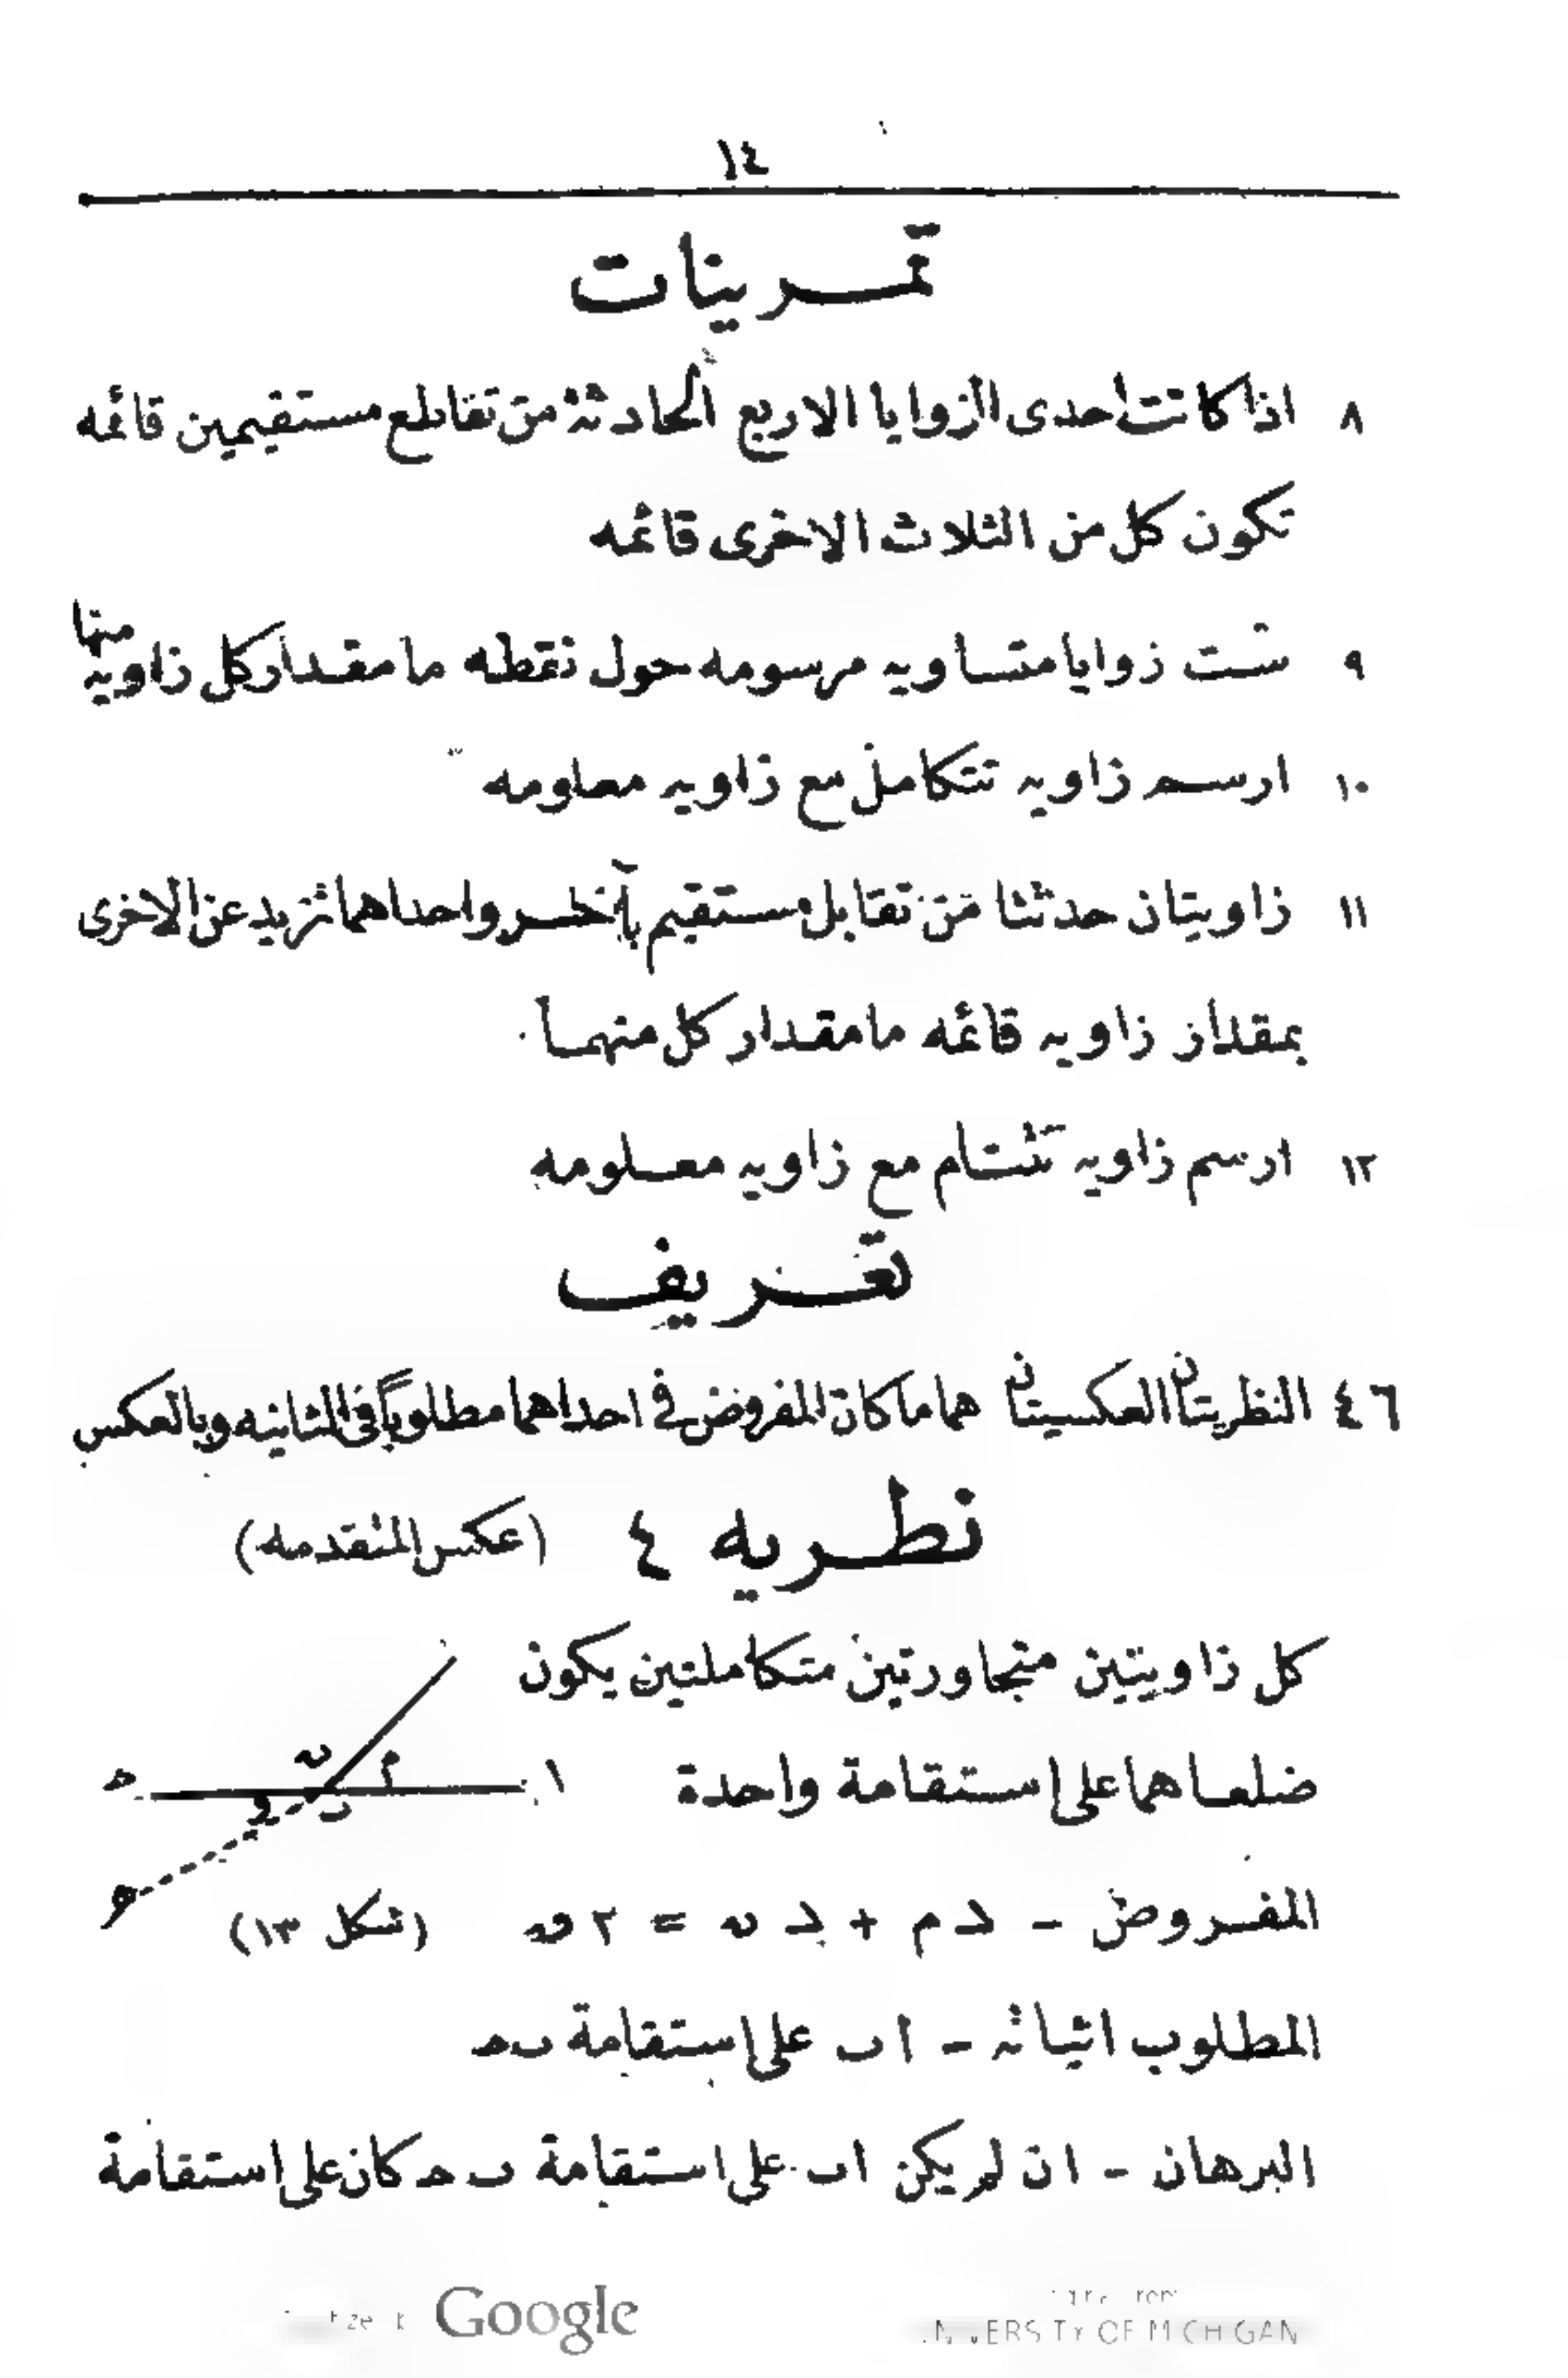 ١٤
تمرينات
٨ اذا كانت احدى الزوايا الاربع الحادثة من تقاطع مستقيمين قائمه
تكون كل من الثلاث الاخرى قائمه
٩ ست زوايا متساويه مرسومه حول نقطه ما مقدار كل زاويه منها
١٠ ارسم زاويه تتكامل مع زاويه معلومه
١١ زاويتان حدثتا من تقابل مستقيم بآخر واحداهما تزيد عن الاخرى
بمقدار زاويه قائمه ما مقدار كل منهما
١٢ ارسم زاويه تتتام مع زاويه معلومه
تعريف
٤٦ النظريتان العكسيتان هما ما كان المفروض في احداهما مطلوباً في الثانيه وبالعكس
نظريه ٤ (عكس المتقدمه)
كل زاويتين متجاورتين متكاملتين يكون
ضلعاهما على استقامة واحدة
ا م ں ه و
المفروض - د م + د ں = ٢ ق (شكل ١٣)
المطلوب اثباته - اب على استقامة بح
البرهان - ان لم يكن اب على استقامة بح كان على استقامة
Google
UNIVERSITY OF MICHIGAN